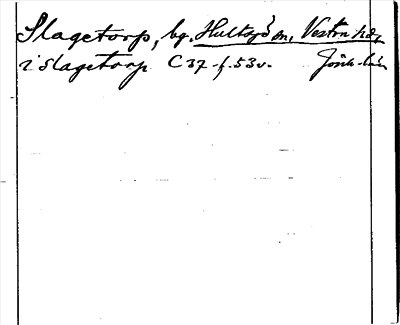 Slagetorp, by. Hultsjö sn, Västra hd,
i slagetorp C 37 f. 53 v. Jönk. län